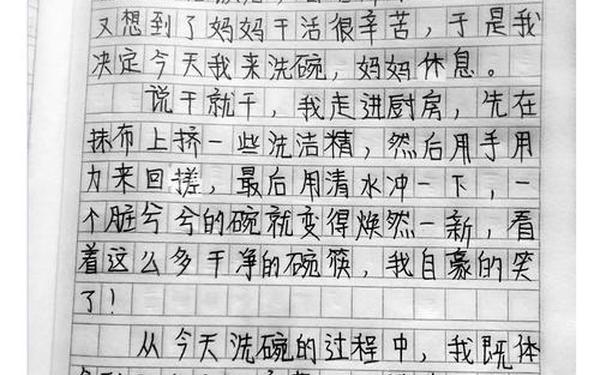 又想到了妈妈干活很辛苦，于是我
决定今天我来洗碗，妈妈休息。
说干就干，我走进厨房，先在
抹布上挤一些洗洁精，然后用手用
力来回搓，最后用清水冲一下，一
个脏兮兮的碗就变得焕然一新，看
着这么多干净的碗筷，我自豪的笑
了！
从今天洗碗的过程中，我既体